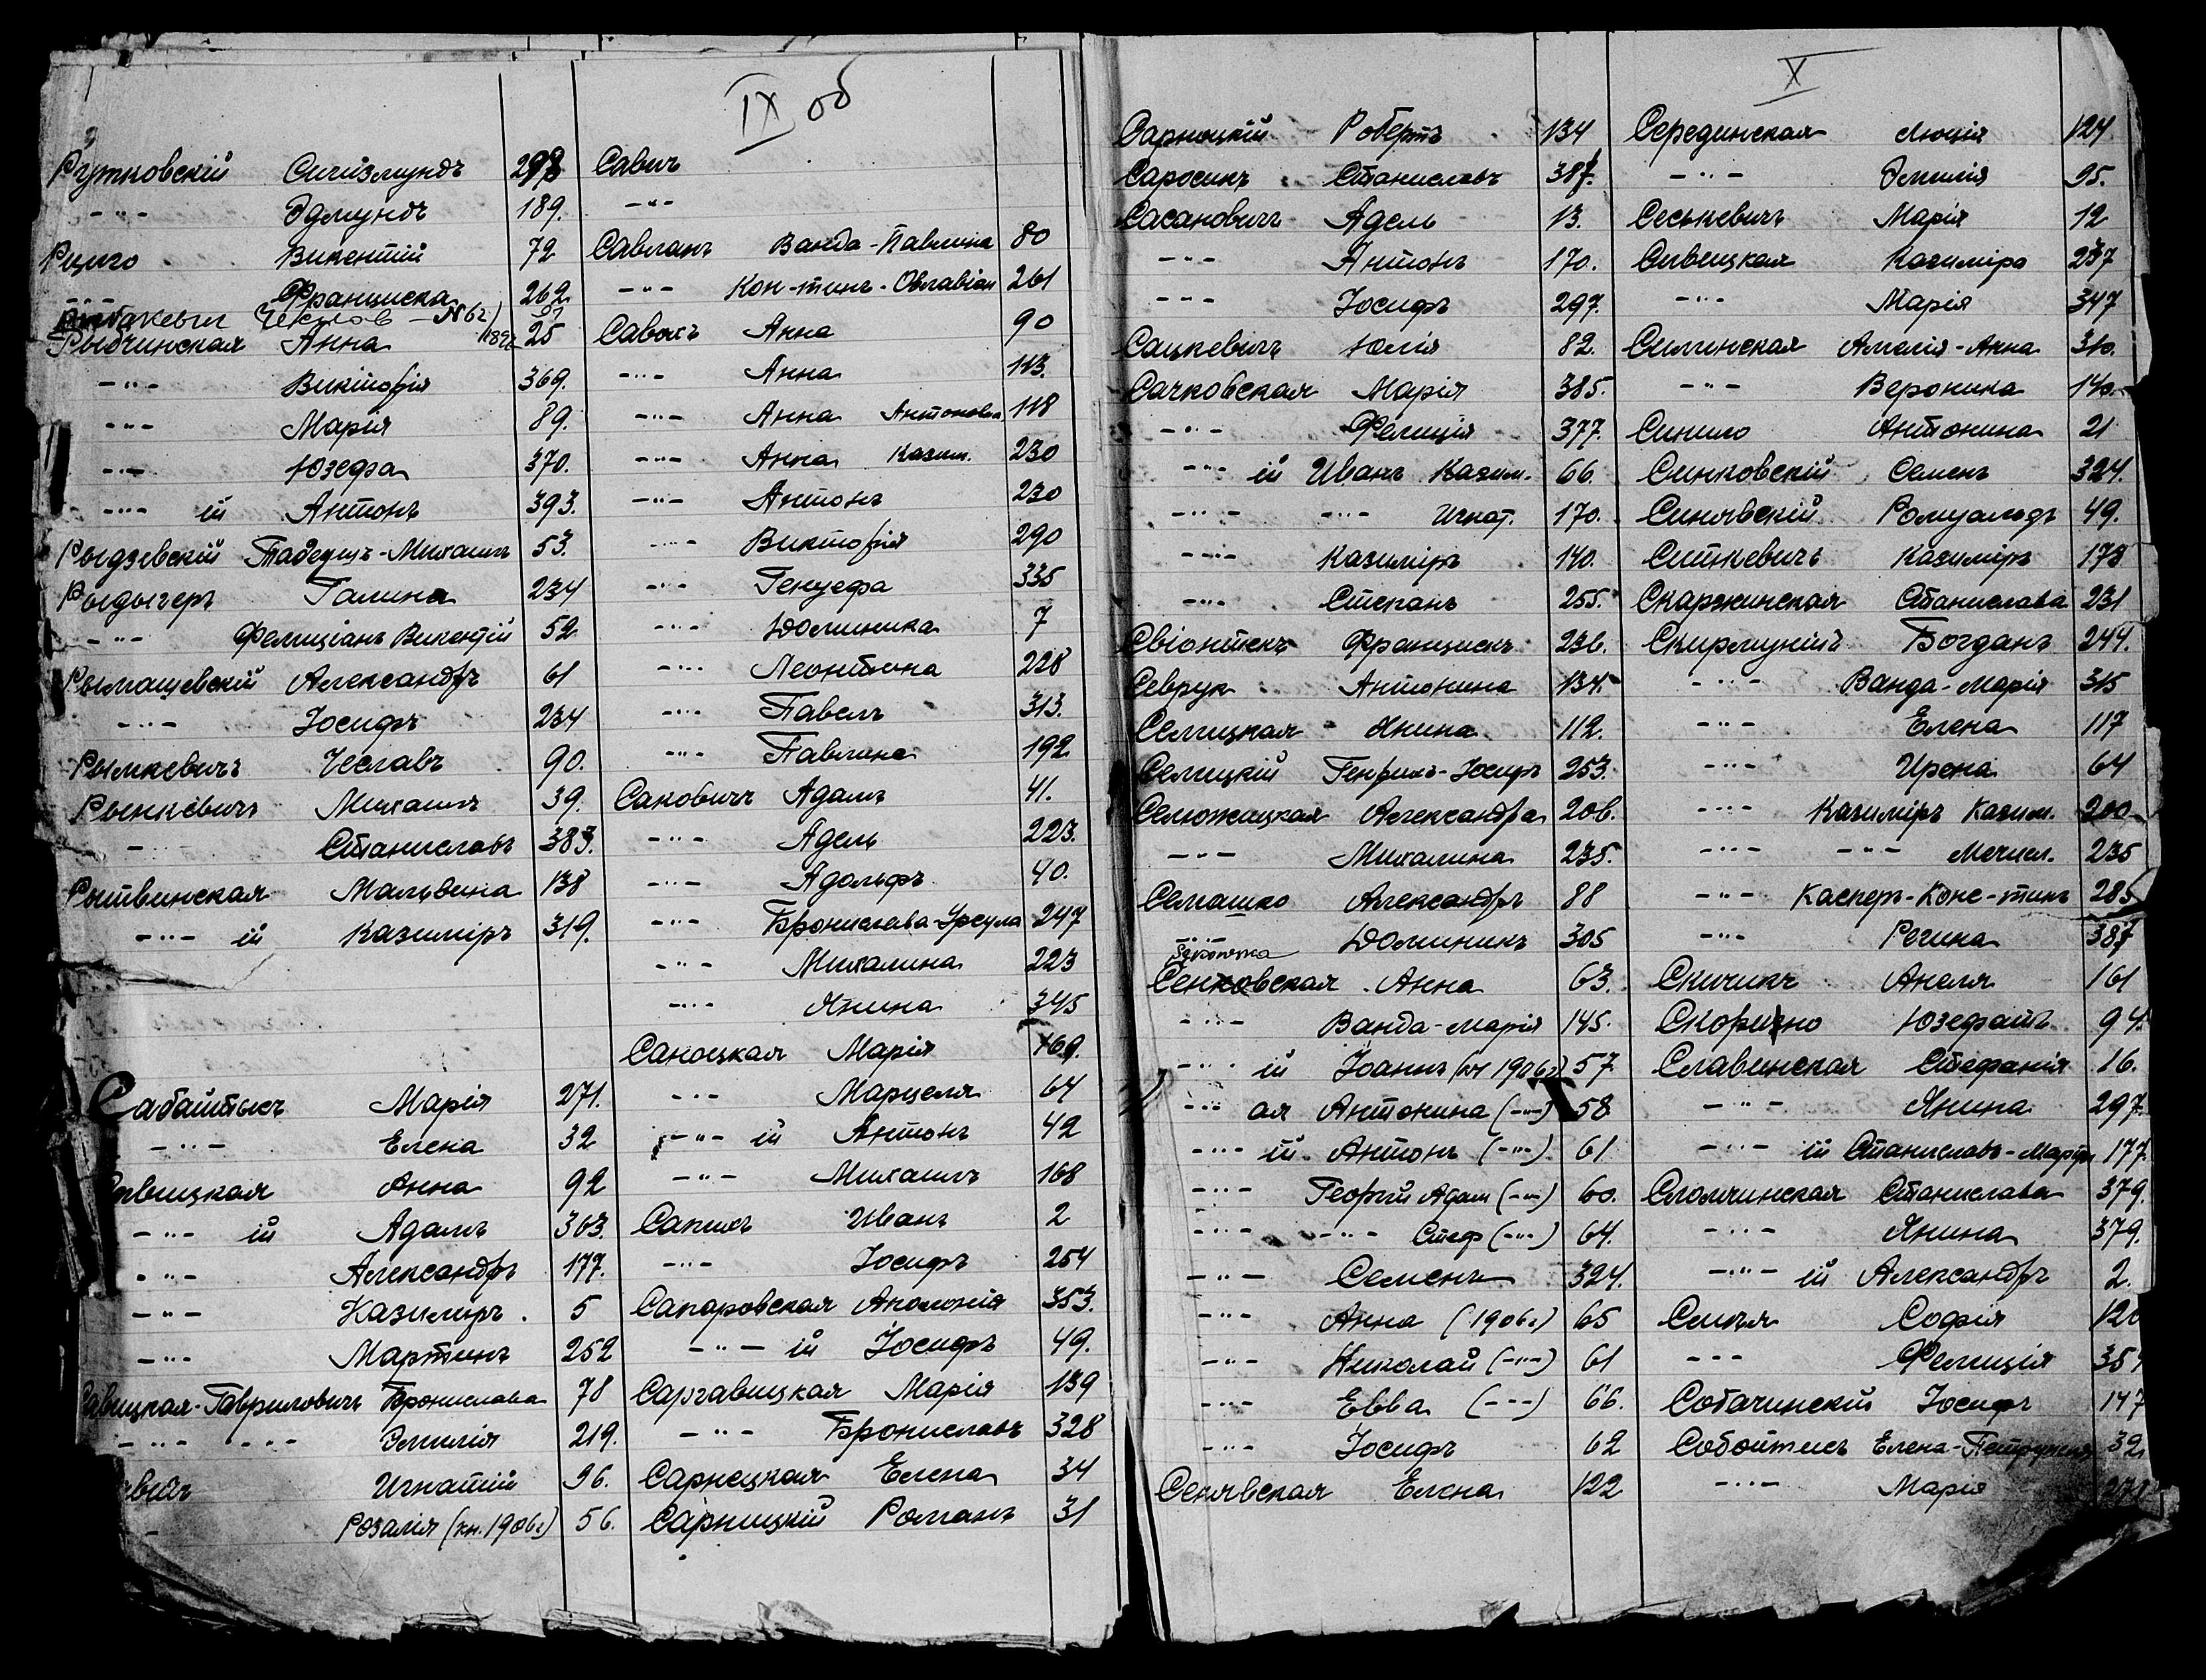 IX об
Рутковскій Сигизмундъ 298
-"- Эдмундъ 189.
Рециго Викентій 72
-"- Франциска 269
Рыбакевич Чеслав – N 62)
Рыбчинская Анна 1892 25
-"- Викторія 369.
-"- Марія 89.
-"- Юзефа 370.
-"- ій Антонъ 393.
Рыдзевскій Тадеушъ-Михаилъ 53.
Рыдыгеръ Галина 234
-"- Фелиціанъ Викентій 52
Рымашевскій Александръ 61
-"- Іосифъ 234
Рымкевичъ Чеславъ 90.
Рынкевичъ Михаилъ 39.
- Станиславъ 383.
Рытвинская Мальвина 138
-"- ій Казиміръ 319.
Сабайтысъ Марія 271.
-"- Елена 32
Савицкая Анна 92
-"- ій Адамъ 363.
-"- Александръ 177.
-"- Казиміръ. 5
-"- Мартинъ 252
Савицкая-Гавриловичъ Бронислава 78
-"- -"- Эмилія 219.
Игнатій 96.
- Розалія (кн. 1906 г) 56.
Савич
-"-
Савланъ Ванда-Павлина 80
-"- Кон-тинъ-Овлавіан 261
Савокъ Анна 90
-"- Анна 113.
-"- Анна Антоновна 118
-"- Анна Казим. 230
-"- Антонъ 230
-"- Викторія 290
-"- Генуефа 335
-"- Доминика 7
-"- Леонтина 228
-"- Павелъ 313.
-"- Павлина 192
Саковичъ Адамъ 41.
-"- Адель 223.
-"- Адольфъ 40.
-"- Бронислава-Урсула 247
-"- Михалина 223
-"- Янина 345
Саноцкая Марія 169.
-"- Марцеля 64
-"- ій Антонъ 42
-"- Михаилъ 168
Сапихъ Иванъ 2
-"- Іосифъ 254
Сапаровская Аполонія 353.
-"- ій Іосифъ 49.
Саргавицкая Марія 139
-"- Брониславъ 328
Сарнецкая Елена 34
Сарницкій Романъ 31
X
Сарноцкій Робертъ 134
Саросикъ Станиславъ 387.
Сасановичъ Адель 13.
-"- Антонъ 170.
-"- Іосифъ 297.
Сацкевичъ Юлія 82.
Сачковская Марія 385.
-"- Фелиція 377.
-"- ій Иванъ Казим. 66.
-"- -"- Игнат. 170.
-"- Казиміръ 140.
-"- Степанъ 255.
Свіонтекъ Францискъ 236.
Севрук Антонина 134.
Селицкая Янина 112.
Селицкій Генрихъ-Іосифъ 253.
Семожицкая Александра 206.
-"- Михалина 235.
Семашко Александръ 88
-"- Доминикъ 305
Сенковская Анна 63.
-"- Ванда-Марія 145.
-"- ій Іоаннъ (кн 1906 г) 57
-"- ая Антонина (-"-) 58
-"- ій Антонъ (-"-) 61
-"- Георгій Адам (-"-) 60.
-"- -"- Стеф (-"-) 64.
-"- Семенъ 324.
-"- Анна (1906 г) 65
-"- Николай (-"-) 61
-"- Евва (-"-) 66.
-"- Іосифъ 62
Сенявская Елена 122
Серединская Люція 124
-"- Эмилія 95.
Сеськевичъ Марія 12
Сивицкая Казиміра 237
-"- Марія 347
Силинская Амелія-Анна 310.
-"- Вероника 140.
Синило Антонина 21
Синковскій Семенъ 324.
Синявскій Ромуальдъ 49.
Ситкевичъ Казиміръ 178
Скаржинская Станислава 231
Скирмунтъ Богданъ 244.
-"- Ванда-Марія 315
-"- Елена 117
-"- Ирена 64
-"- Казиміръ Казим. 200
-"- -"- Мечисл. 235
-"- Касперъ-Конс-тинъ 285
-"- Регина 387
Скичикъ Анеля 161
Скорино Юзефатъ 94.
Славинская Стефанія 16.
-"- Янина 297.
-"- ій Станиславъ-Март 177.
Сломчинская Станислава 379.
-"- Янина 379.
-"- ій Александръ 2.
София 120
-"- Фелиція 35
Собачинскій Іосифъ 147
Собойтисъ Елена-Петрунеля 32
-"- Марія 271